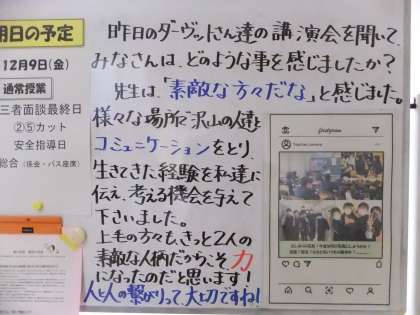 明日の予定
12月9日(金)
通常授業
三者面談最終日
②⑤カット
安全指導日
総合(係会・バス座席)
昨日のダーヴットさん達の講演会を聞いて、
みなさんは、どのような事を感じましたか?
先生は、「素敵な方々だな」と感じました。
様々な場所で沢山の人達と
コミュニケーションをとり、
生きてきた経験を私達に
伝え、考える機会を与えて
下さいました。
上毛の方々も、きっと2人の
素敵な人柄だからこそ力
になったのだと思います!
人と人の繋がりって、大切ですね!